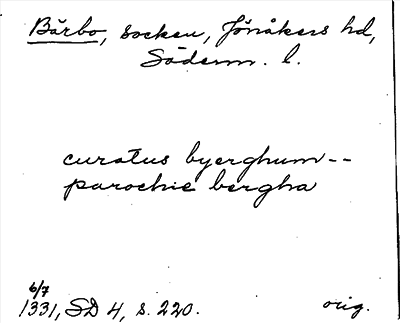 Bärbo, socken, Jönåkers hd,
Söderm. l.
curatus byerghum--
parochie bergha
6/7
1331, SD 4, s. 220.
orig.